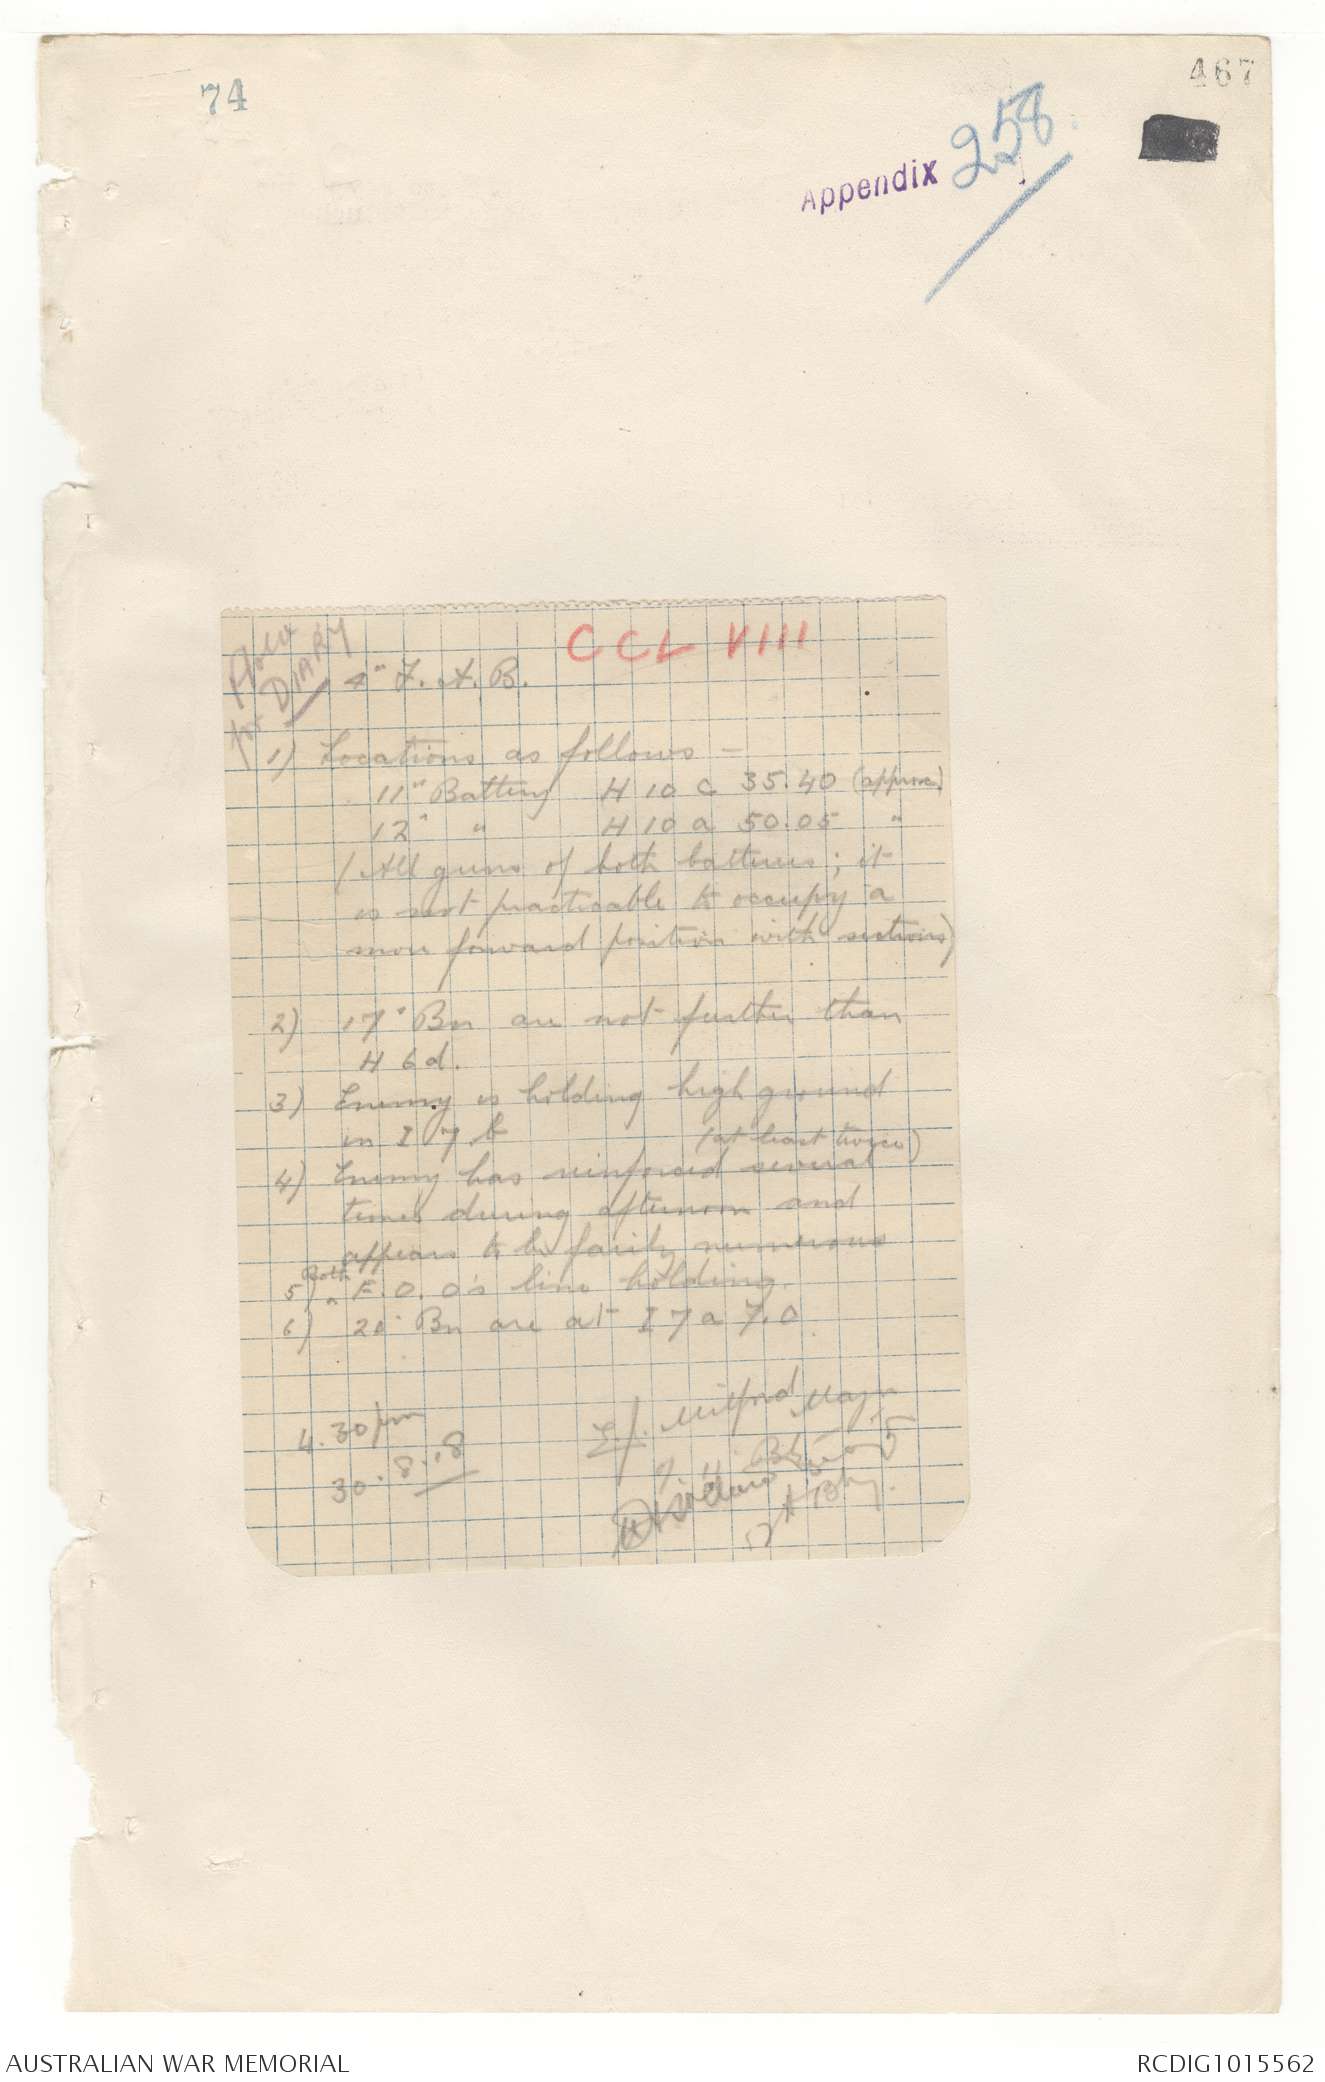 74
467
Appendix 258
CCL VIII
for DIARY
4" F. A. B.
1) Locations as follows -
11" Battery H 10 c 35.40 (approx)
12" " H 10 a 50.05 "
(All guns of both batteries ; it
is not practicable to occupy a
more forward position with sections)
2) 17" Bn are not further than
H 6 d.
3) Enemy is holding high ground
in I 7 b
(at least twice)
4) Enemy has reinforced several
times during afternoon and
appears to be fairly numerous
Both
5) ^ F.O.O's line holding.
6) 20" Bn are at I 7 a 7.0
4.30 pm
30.8.18
E.J. Milford Major
Bty.
AUSTRALIAN WAR MEMORIAL
RCDIG1015562